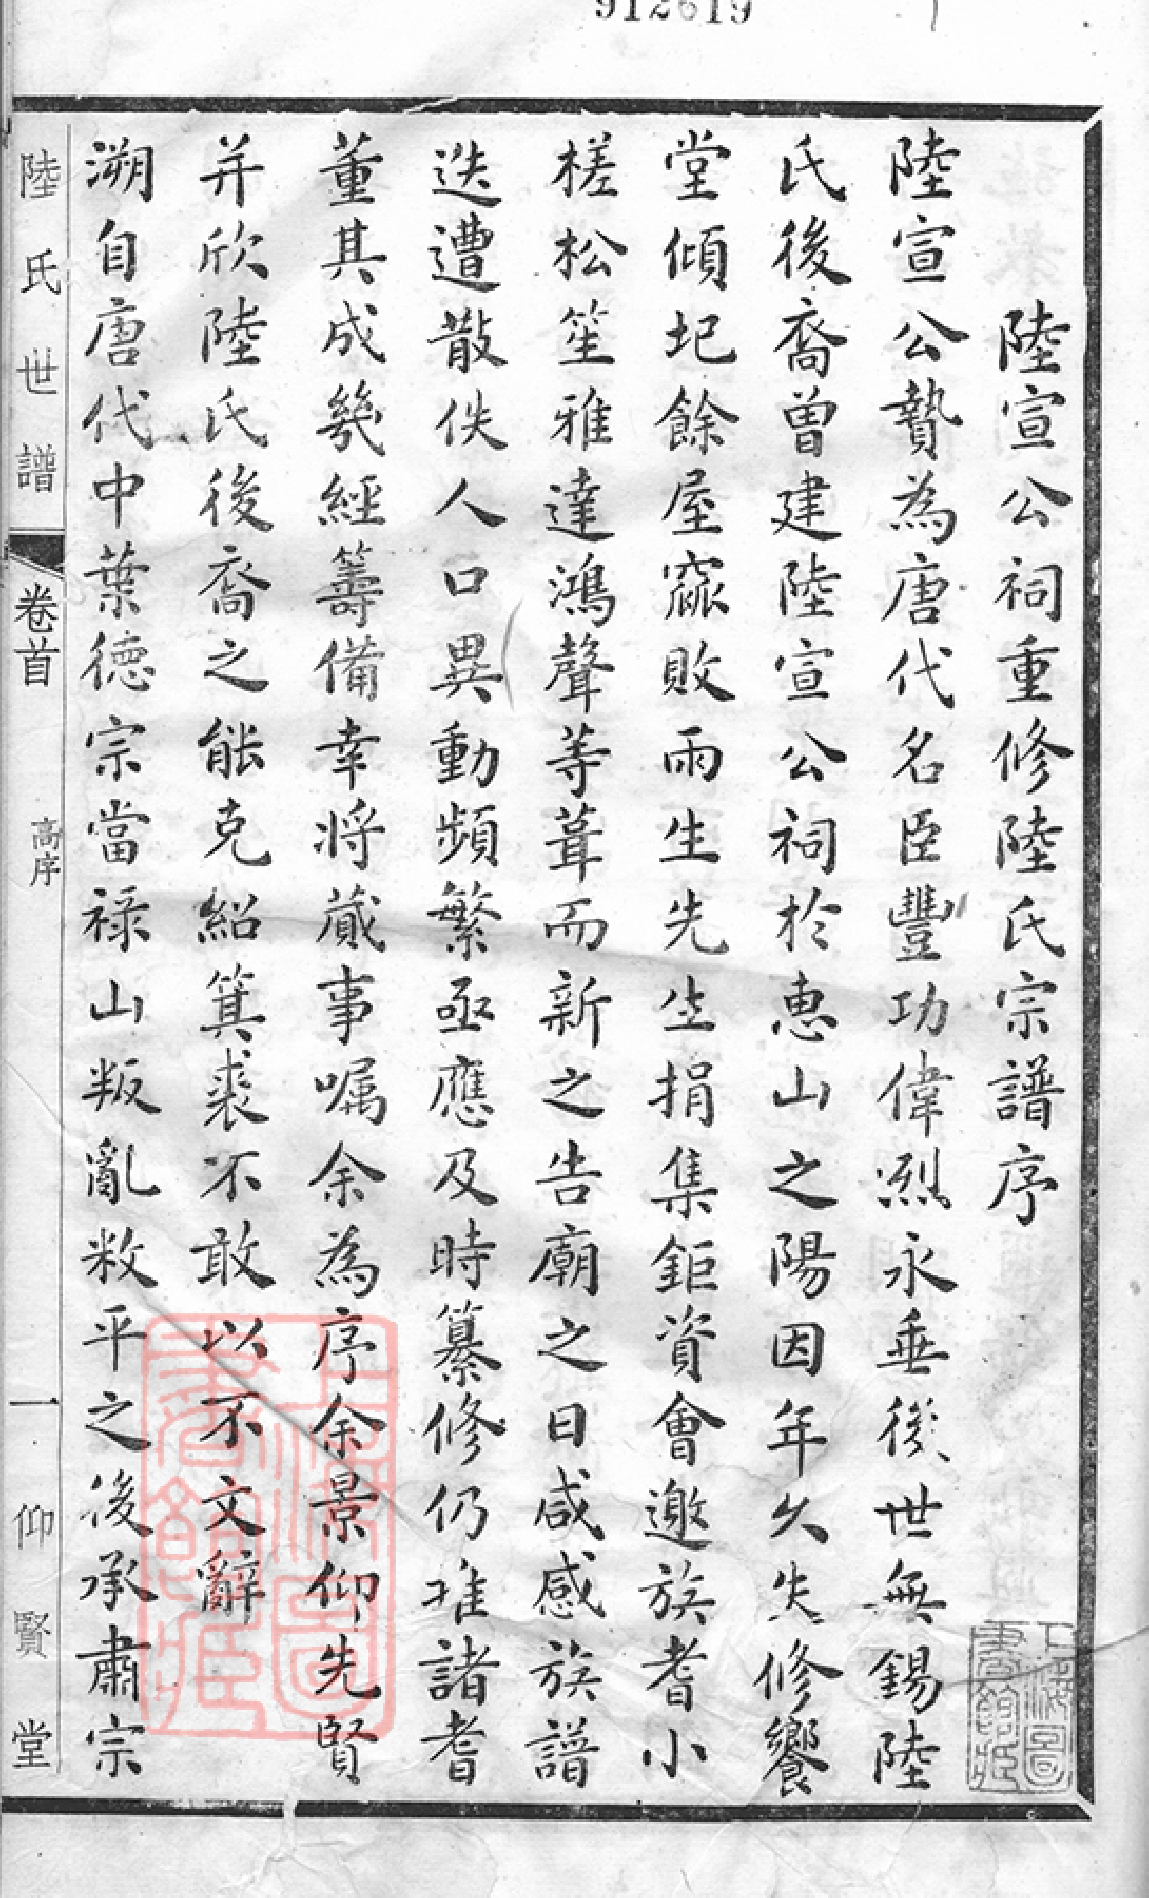 912619
陸宣公祠重修陸氏宗譜序
陸宣公贄為唐代名臣豐功偉烈永垂後世無錫陸
氏後裔曾建陸宣公祠於惠山之陽因年久失修饗
堂傾圮餘屋窳敗雨生先生捐集鉅資會邀族耆小
槎松笙雅達鴻聲等葺而新之告廟之日咸感族譜
迭遭散佚人口異動頻繁亟應及時纂修仍推諸耆
董其成幾經籌備幸將蕆事囑余為序余景仰先賢
并欣陸氏後裔之能克紹箕裘不敢以不文辭
溯自唐代中葉德宗當祿山叛亂敉平之後承肅宗
陸氏世譜
卷首
高序
一
仰賢堂
上海圖書館藏
上海圖書館藏